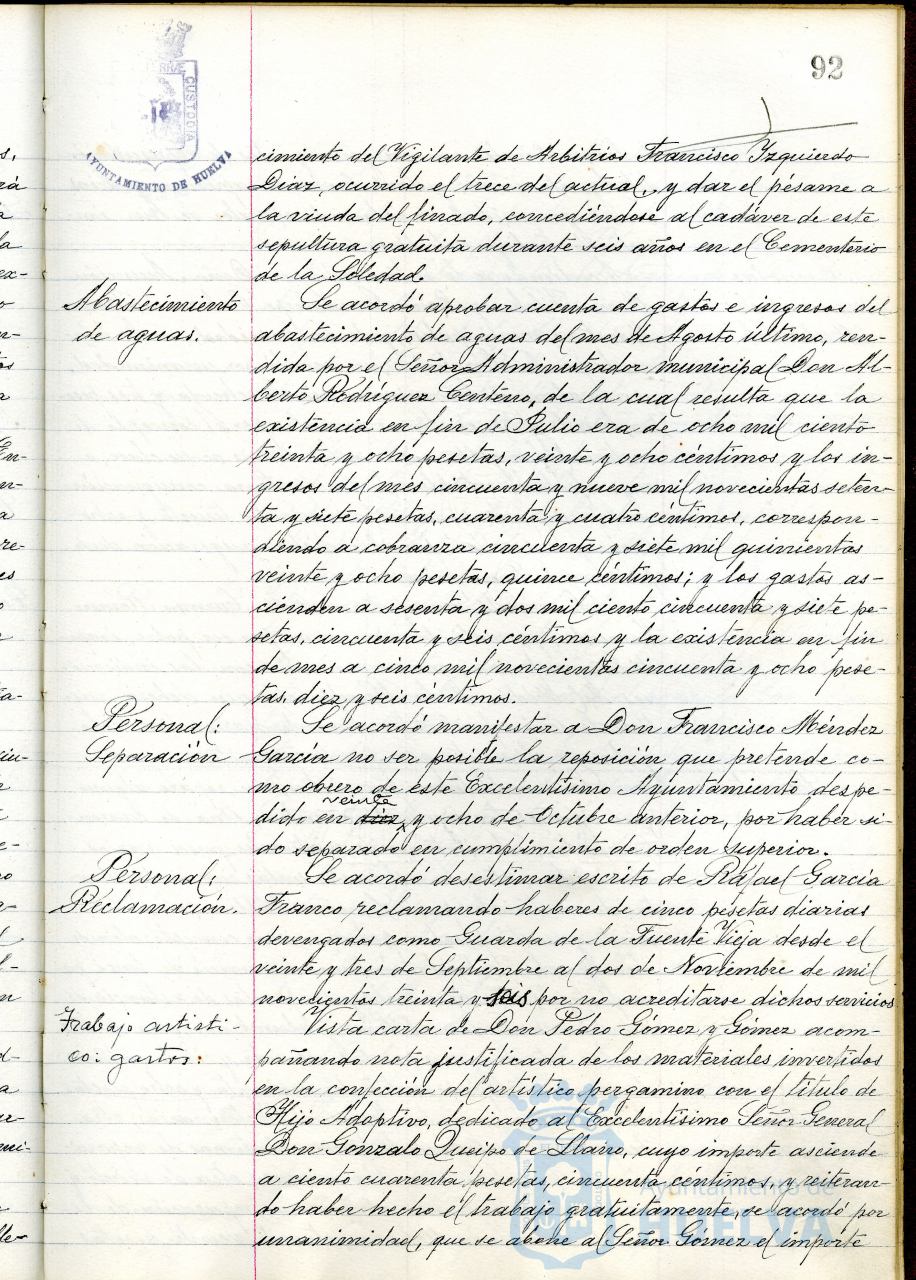 92
PORTUS MARIS ET TERRÆ CUSTODIA
AYUNTAMIENTO DE HUELVA
cimiento del Vigilante de Arbitrios Francisco Izquierdo
Díaz, ocurrido el trece del actual, y dar el pésame a
la viuda del finado, concediéndose al cadáver de este
sepultura gratuita durante seis años en el Cementerio
de la Soledad.
Abastecimiento
de aguas.
Se acordó aprobar cuenta de gastos e ingresos del
abastecimiento de aguas del mes de Agosto último, ren-
dida por el Señor Administrador municipal Don Al-
berto Rodríguez Centeno, de la cual resulta que la
existencia en fin de Julio era de ocho mil ciento
treinta y ocho pesetas, veinte y ocho céntimos y los in-
gresos del mes cincuenta y nueve mil novecientas seten-
ta y siete pesetas, cuarenta y cuatro céntimos, correspon-
diendo a cobranza cincuenta y siete mil quinientas
veinte y ocho pesetas, quince céntimos; y los gastos as-
cienden a sesenta y dos mil ciento cincuenta y siete pe-
setas, cincuenta y seis céntimos y la existencia en fin
de mes a cinco mil novecientas cincuenta y ocho pese-
tas, diez y seis centimos.
Personal:
Separación
Se acordó manifestar a Don Francisco Méndez
García no ser posible la reposición que pretende co-
mo obrero de este Excelentísimo Ayuntamiento despe-
veinte
dido en diez y ocho de Octubre anterior, por haber si-
do separado en cumplimiento de orden superior.
Personal:
Reclamación.
Se acordó desestimar escrito de Rafael García
Franco reclamando haberes de cinco pesetas diarias
devengados como Guarda de la Fuente Vieja desde el
veinte y tres de Septiembre al dos de Noviembre de mil
novecientos treinta y seis por no acreditarse dichos servicios
Trabajo artísti-
co: gastos:
Vista carta de Don Pedro Gómez y Gómez acom-
pañando nota justificada de los materiales invertidos
en la confección del artístico pergamino con el título de
Hijo Adoptivo, dedicado al Excelentísimo Señor General
Don Gonzalo Queipo de Llano, cuyo importe asciende
a ciento cuarenta pesetas, cincuenta céntimos, y reiteran-
do haber hecho el trabajo gratuitamente, se acordó por
unanimidad, que se abone al Señor Gómez el importe
Ayuntamiento de
HUELVA